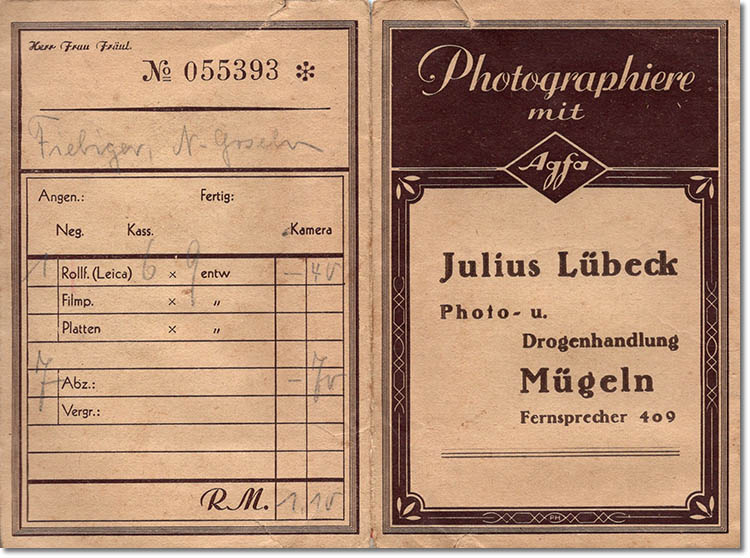 Herr Frau Fräul.
№ 055393 *
Fiebiger, N-Goseln
Angen.: Fertig:
Neg. Kass. Kamera
1 Rollf. (Leica) 6 × 9 entw – 40
Filmp. × „
Platten × „
7 Abz.: – 70
Vergr.:
R.M. 1,10
Photographiere
mit
Agfa
Julius Lübeck
Photo- u.
Drogenhandlung
Mügeln
Fernsprecher 409
PH